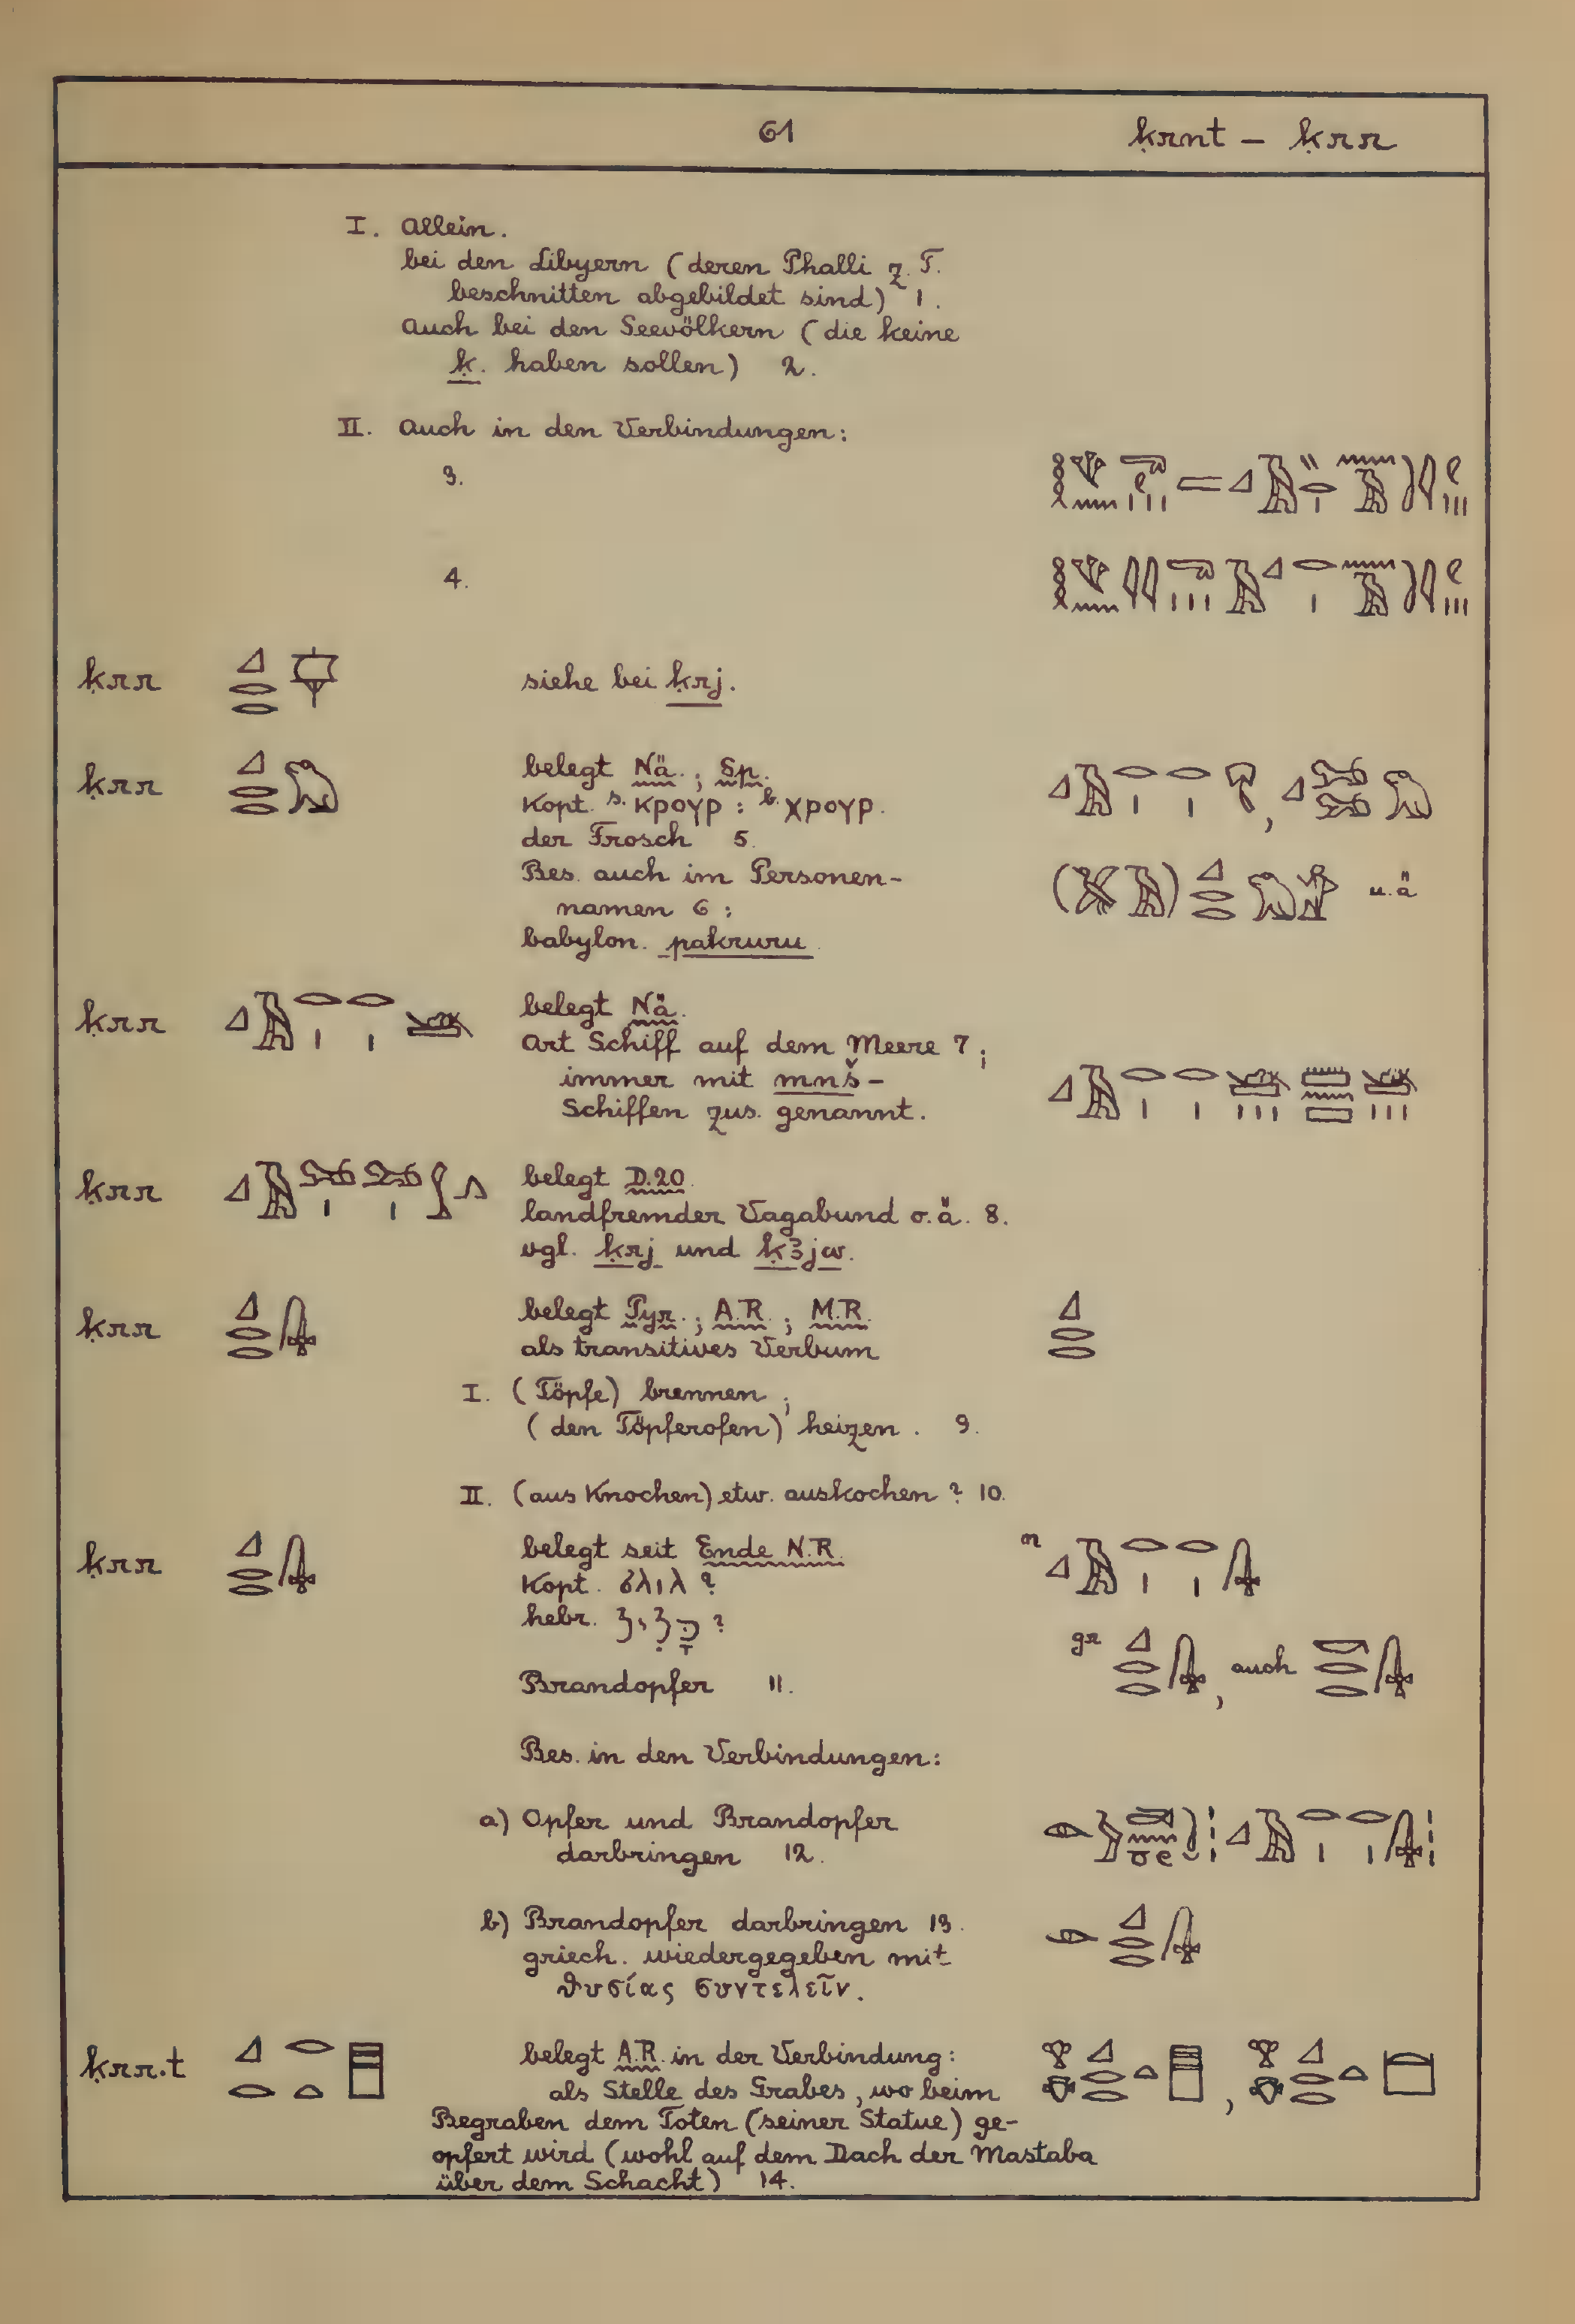 61 ḳrnt – ḳrr
I. allein.
bei den Libyern (deren Phalli z. T.
beschnitten abgebildet sind) 1.
auch bei den Seevölkern (die keine
ḳ. haben sollen) 2.
II. auch in den Verbindungen:
3.
4.
ḳrr siehe bei ḳrj.
ḳrr belegt Nä.; Sp.
Kopt. s. ⲕⲣⲟⲩⲣ : b. ⲭⲣⲟⲩⲣ.
der Frosch 5.
Bes. auch im Personen-
namen 6: u. ä
babylon. paḳruru.
ḳrr belegt Nä.
Art Schiff auf dem Meere 7;
immer mit mnš-
Schiffen zus. genannt.
ḳrr belegt D.20.
landfremder Vagabund o. ä. 8.
vgl. ḳrj und ḳꜣjw.
ḳrr belegt Pyr.; A.R.; M.R.
als transitives Verbum
I. (Töpfe) brennen;
(den Töpferofen) heizen. 9.
II. (aus Knochen) etw. auskochen? 10.
ḳrr belegt seit Ende N.R.
Kopt. ϭⲗⲓⲗ ?
hebr. כָּלִיל ?
gr auch
Brandopfer 11.
Bes. in den Verbindungen:
a) Opfer und Brandopfer
darbringen 12.
b) Brandopfer darbringen 13.
griech. wiedergegeben mit
θυσίας συντελεῖν.
ḳrr.t belegt A.R. in der Verbindung:
als Stelle des Grabes, wo beim
Begraben dem Toten (seiner Statue) ge-
opfert wird (wohl auf dem Dach der Mastaba
über dem Schacht) 14.